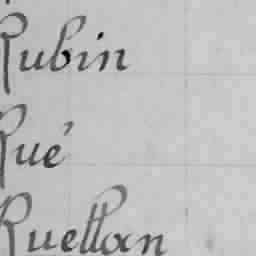 Rubin
Rué
Ruellan